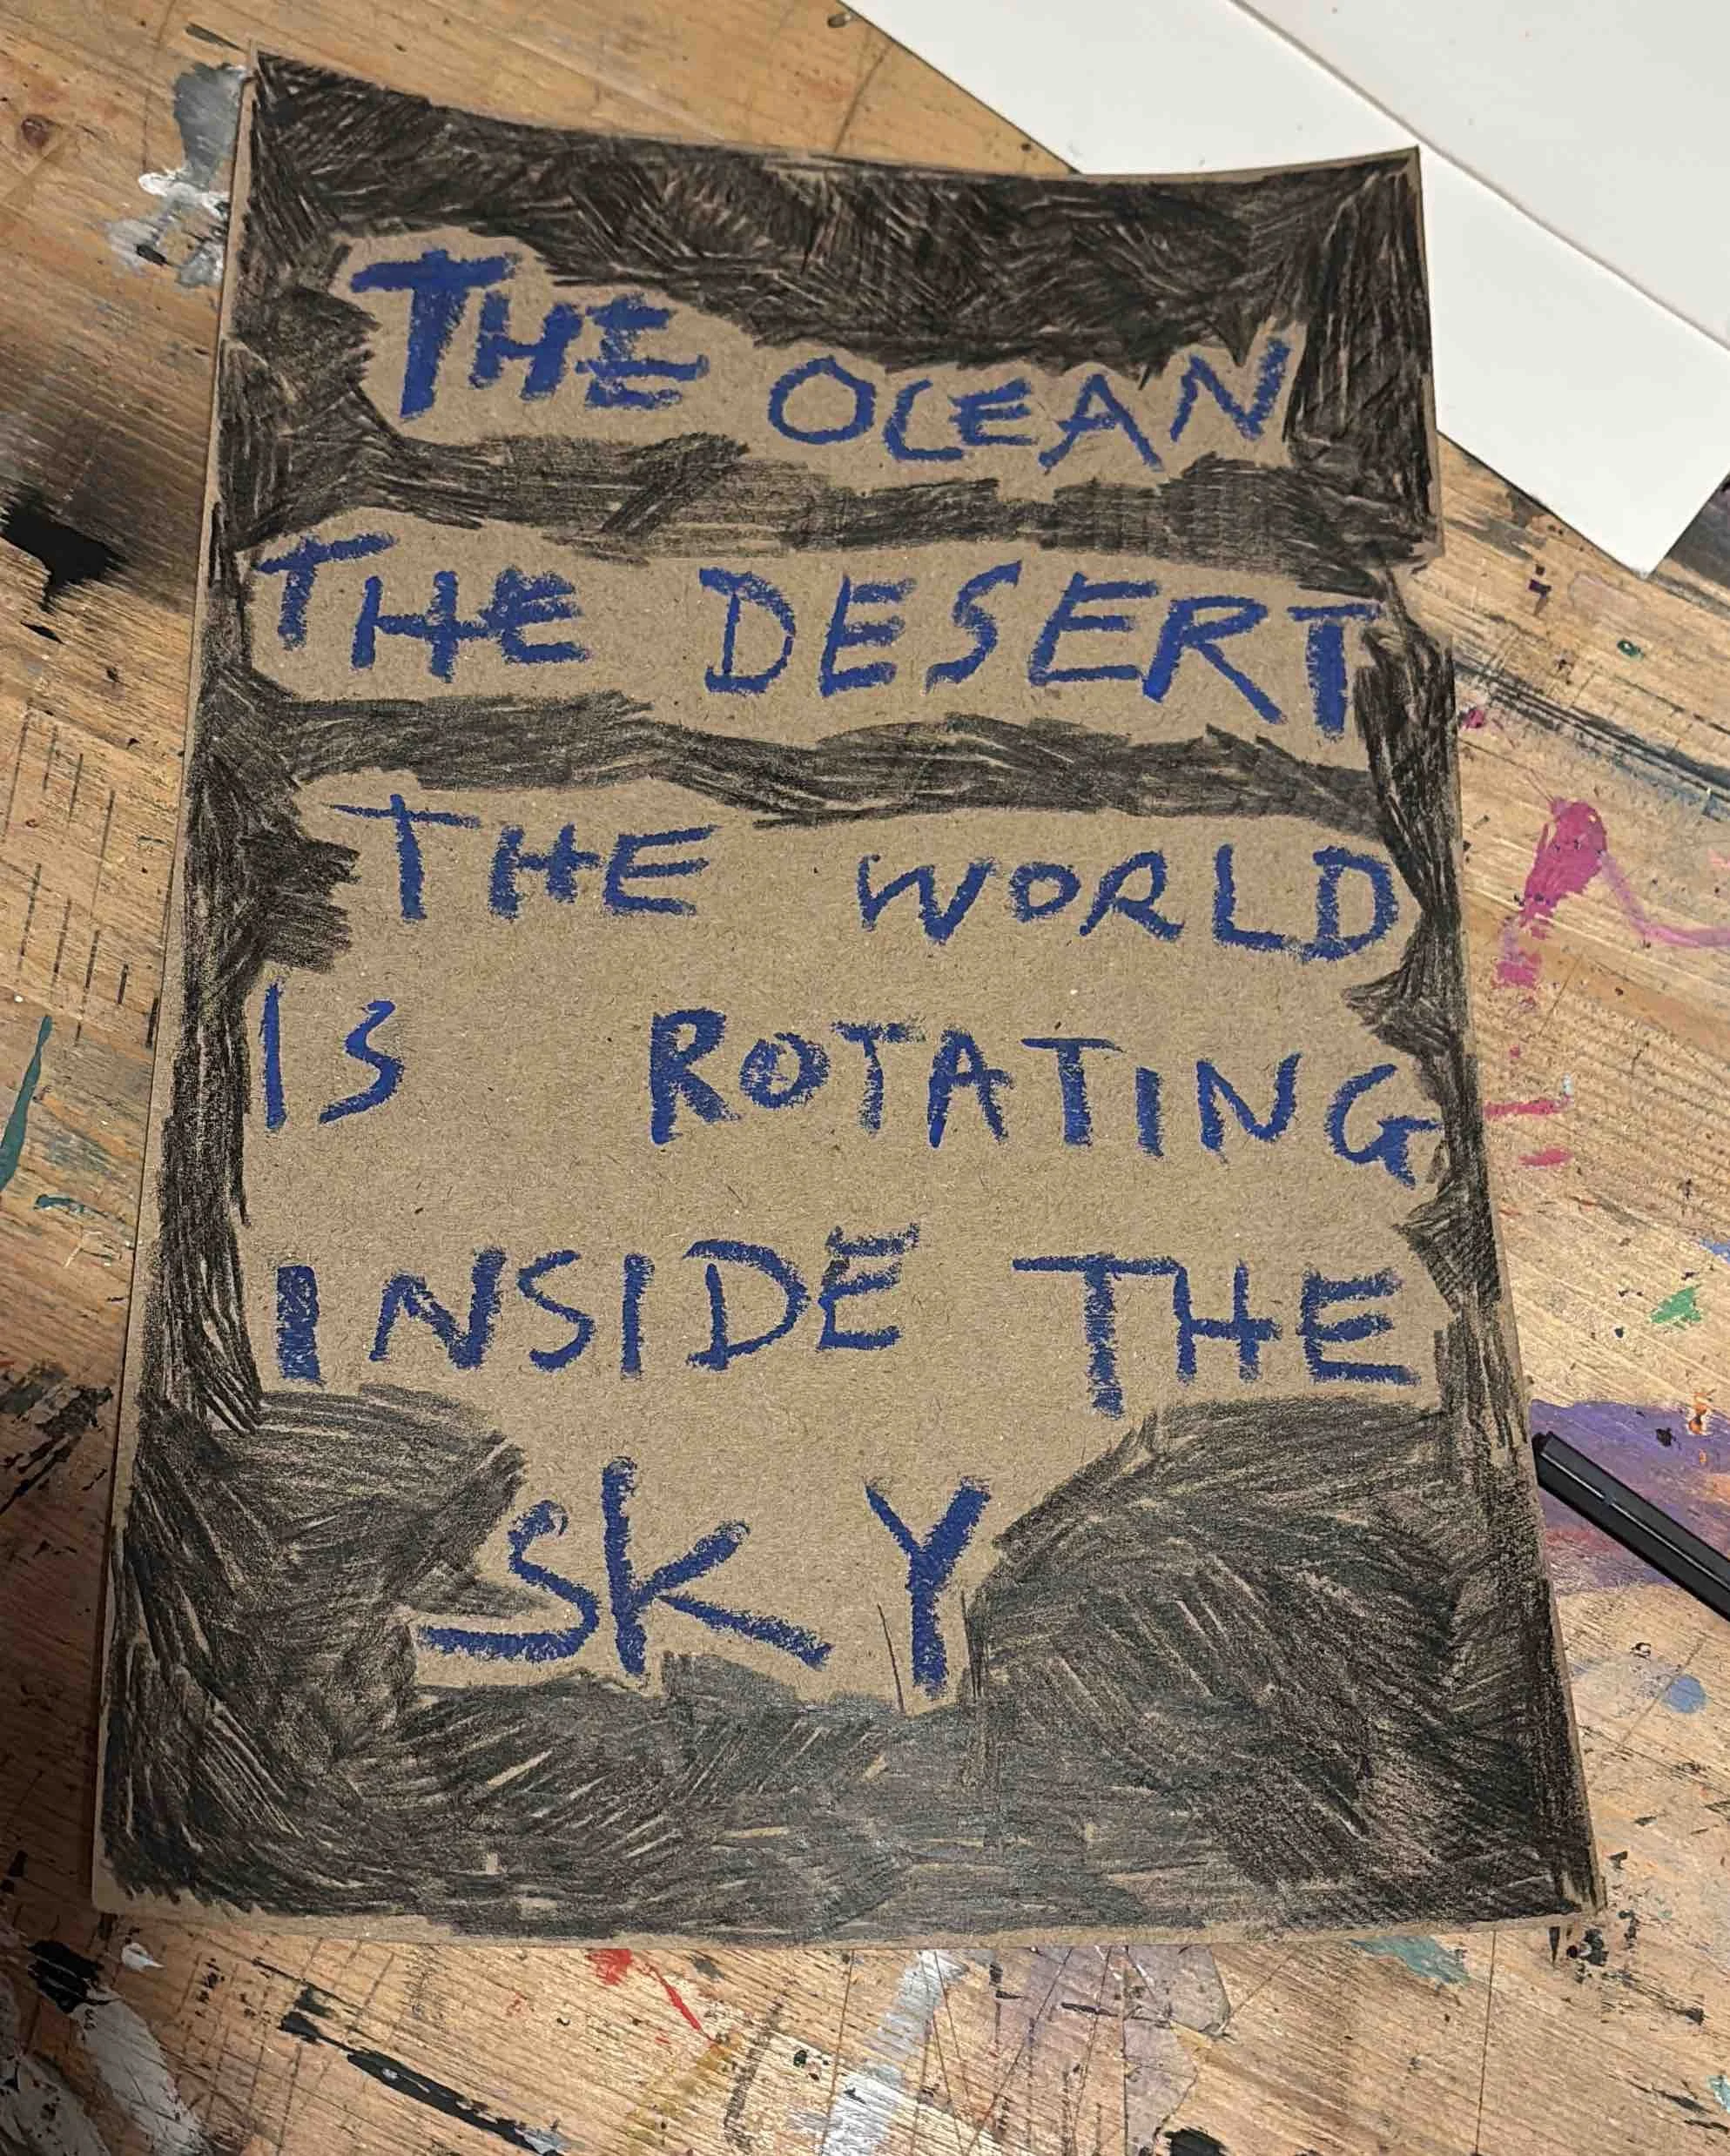 THE OCEAN
THE DESERT
THE WORLD
IS ROTATING
INSIDE THE
SKY